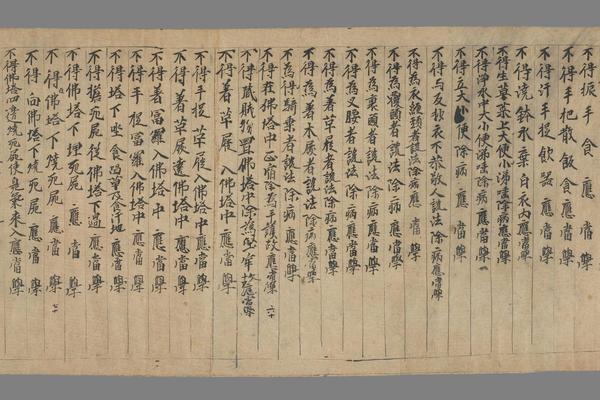 不得振手食應當學
不得手把散飯食應當學
不得汙手捉飲器應當學
不得洗鉢水棄白衣內應當學
不得生草菜上大便小涕唾除病應當學
不得淨水中大小便涕唾除病應當學
不得立大小便除病應當學
不得与反抄衣不恭敬人說法除病應當學
不得為衣纏頸者說法除病應當學
不得為覆頭者說法除病應當學
不得為叉腰者說法除病應當學
不得為著草屣者說法除病應當學
不得為著木屐者說法除病應當學
不得為騎乘者說法除病應當學
不得在佛塔中止宿除為守護故應當學 六十
不得藏財物置佛塔中除為堅牢故應當學
不得著草屣入佛塔中應當學
不得手捉草屣入佛塔中應當學
不得著草屣遶佛塔中應當學
不得著富羅入佛塔中應當學
不得手捉富羅入佛塔中應當學
不得塔下坐食留草及食汙地應當學
不得擔死屍從佛塔下過應當學
不得佛塔下埋死屍應當學
不得佛塔下燒死屍應當學 七十
不得向佛塔下燒死屍應當學
不得佛塔四邊燒死屍使臭氣來入應當學